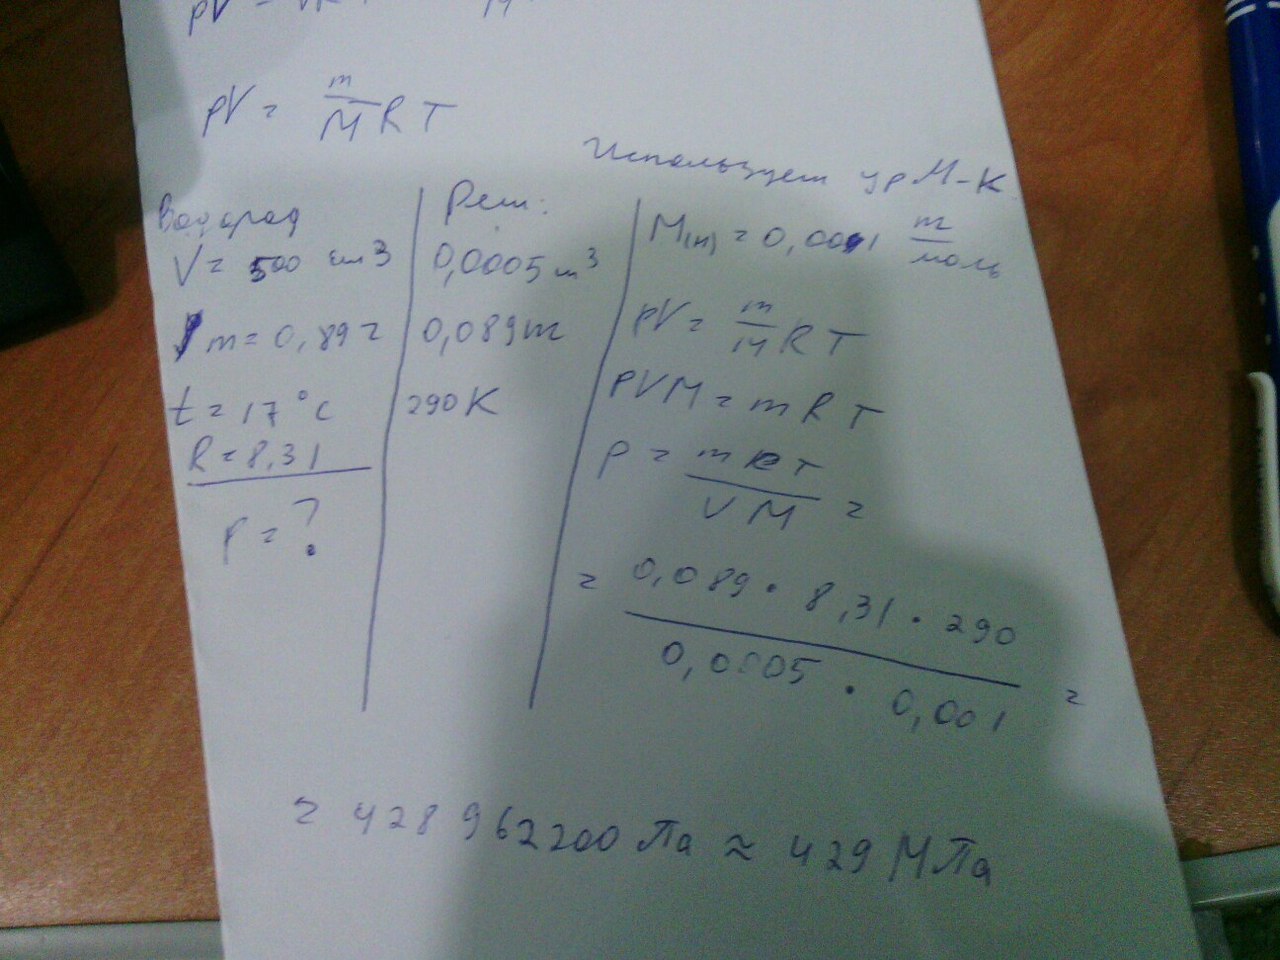 pV = νRT
pV = m/M RT
Используем ур М-К
Водород
V = 500 см3
m = 0,89г
t = 17°C
R = 8,31
p = ?
Реш:
0,0005 м³
0,089 кг
290K
M(H) = 0,001 кг/моль
pV = m/M RT
PVM = mRT
P = mRT/VM =
= 0,089 · 8,31 · 290 / 0,0005 · 0,001 =
= 428 962200 Па ≈ 429 МПа